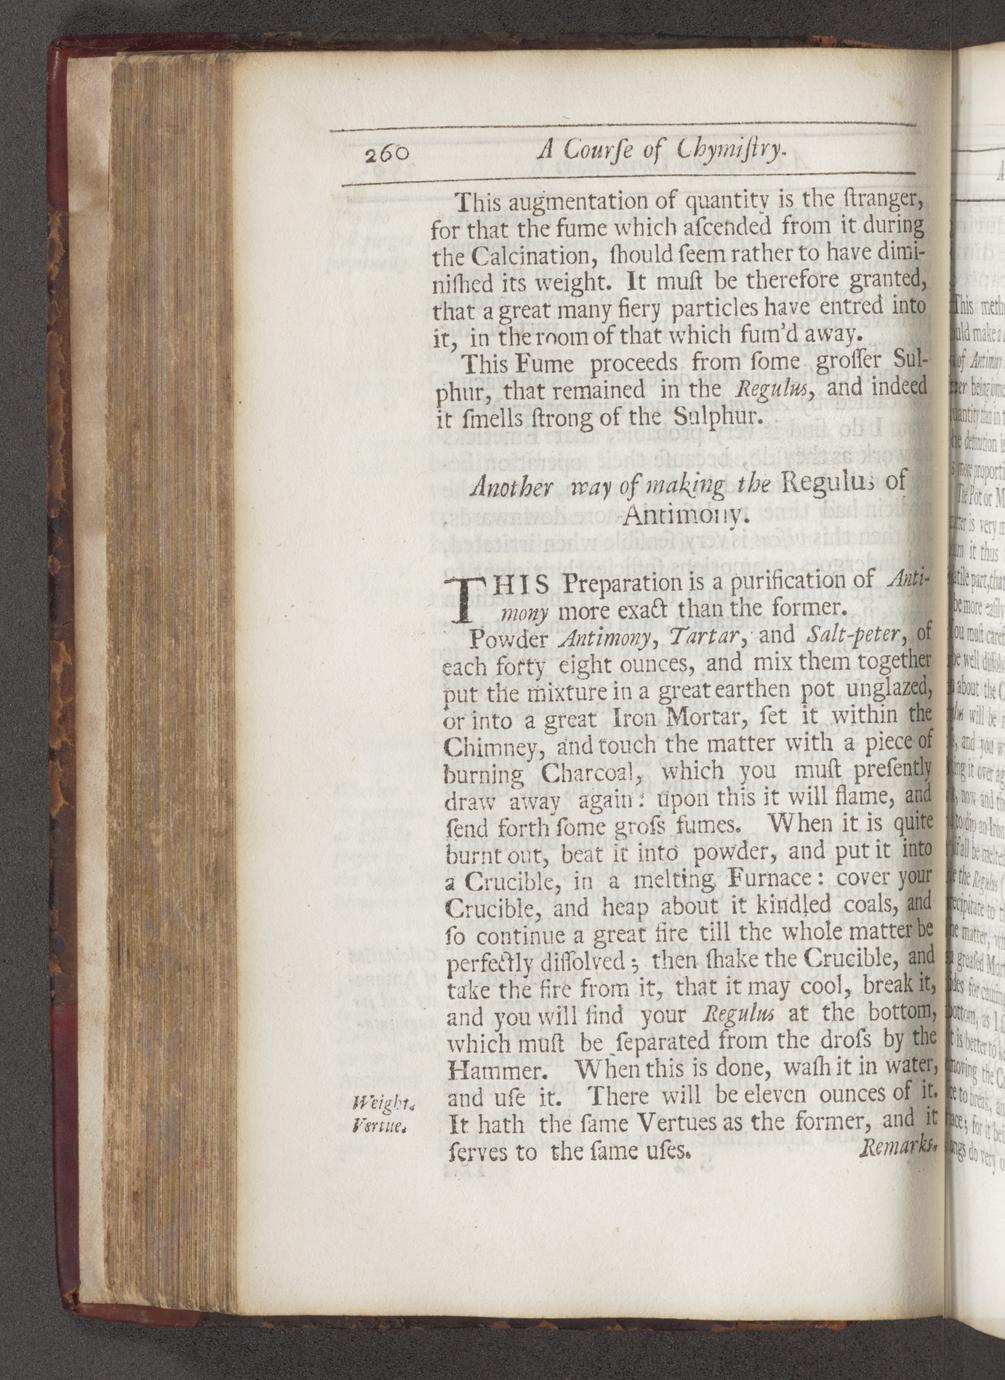 260 A Courſe of Chymiſtry.
This augmentation of quantity is the ſtranger,
for that the fume which aſcended from it during
the Calcination, ſhould ſeem rather to have dimi-
niſhed its weight. It muſt be therefore granted,
that a great many fiery particles have entred into
it, in the room of that which fum'd away.
This Fume proceeds from ſome groſſer Sul-
phur, that remained in the Regulus, and indeed
it ſmells ſtrong of the Sulphur.
Another way of making the Regulus of
Antimony.
THIS Preparation is a purification of Anti-
mony more exact than the former.
Powder Antimony, Tartar, and Salt-peter, of
each forty eight ounces, and mix them together
put the mixture in a great earthen pot unglazed,
or into a great Iron Mortar, ſet it within the
Chimney, and touch the matter with a piece of
burning Charcoal, which you muſt preſently
draw away again: upon this it will flame, and
ſend forth ſome groſs fumes. When it is quite
burnt out, beat it into powder, and put it into
a Crucible, in a melting Furnace: cover your
Crucible, and heap about it kindled coals, and
ſo continue a great fire till the whole matter be
perfectly diſſolved; then ſhake the Crucible, and
take the fire from it, that it may cool, break it,
and you will find your Regulus at the bottom,
which muſt be ſeparated from the droſs by the
Hammer. When this is done, waſh it in water,
Weight. and uſe it. There will be eleven ounces of it.
Vertue. It hath the ſame Vertues as the former, and it
ſerves to the ſame uſes. Remarks.